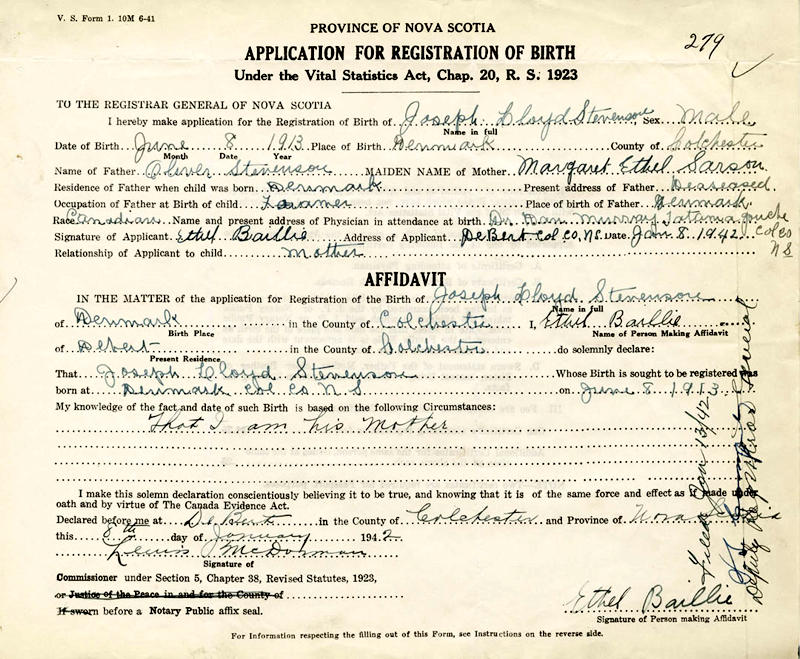 V. S. Form 1. 10M 6-41
PROVINCE OF NOVA SCOTIA
279
APPLICATION FOR REGISTRATION OF BIRTH
Under the Vital Statistics Act, Chap. 20, R. S. 1923
TO THE REGISTRAR GENERAL OF NOVA SCOTIA
I hereby make application for the Registration of Birth of Joseph Lloyd Stevenson Sex Male
Name in full
Date of Birth June 8 1913 Place of Birth Denmark County of Colchester
Month Date Year
Name of Father Oliver Stevenson MAIDEN NAME of Mother Margaret Ethel Sarson
Residence of Father when child was born Denmark Present address of Father Deceased
Occupation of Father at Birth of child Farmer Place of birth of Father Denmark
Race Canadian Name and present address of Physician in attendance at birth Dr. Dan Murray Tatamagouche
Signature of Applicant Ethel Baillie Address of Applicant DeBert Col. Co. N.S. Date Jan 8 1942 Col Co
N S
Relationship of Applicant to child mother
AFFIDAVIT
IN THE MATTER of the application for Registration of the Birth of Joseph Lloyd Stevenson
Name in full
of Denmark in the County of Colchester I, Ethel Baillie
Birth Place Name of Person Making Affidavit
of Debert in the County of Colchester do solemnly declare:
Present Residence
That Joseph Lloyd Stevenson Whose Birth is sought to be registered was
born at Denmark Col Co N S on June 8 1913
My knowledge of the fact and date of such Birth is based on the following Circumstances:
That I am his Mother
I make this solemn declaration conscientiously believing it to be true, and knowing that it is of the same force and effect as if made under
oath and by virtue of The Canada Evidence Act.
Declared before me at DeBert in the County of Colchester and Province of Nova Scotia
this 8th day of January 1942
Lewis McDorman
Signature of
Commissioner under Section 5, Chapter 38, Revised Statutes, 1923,
or Justice of the Peace in and for the County of
If sworn before a Notary Public affix seal.
Ethel Baillie
Signature of Person making Affidavit
For Information respecting the filling out of this Form, see Instructions on the reverse side.
Filed Jan 13/42
Deputy Registrar General